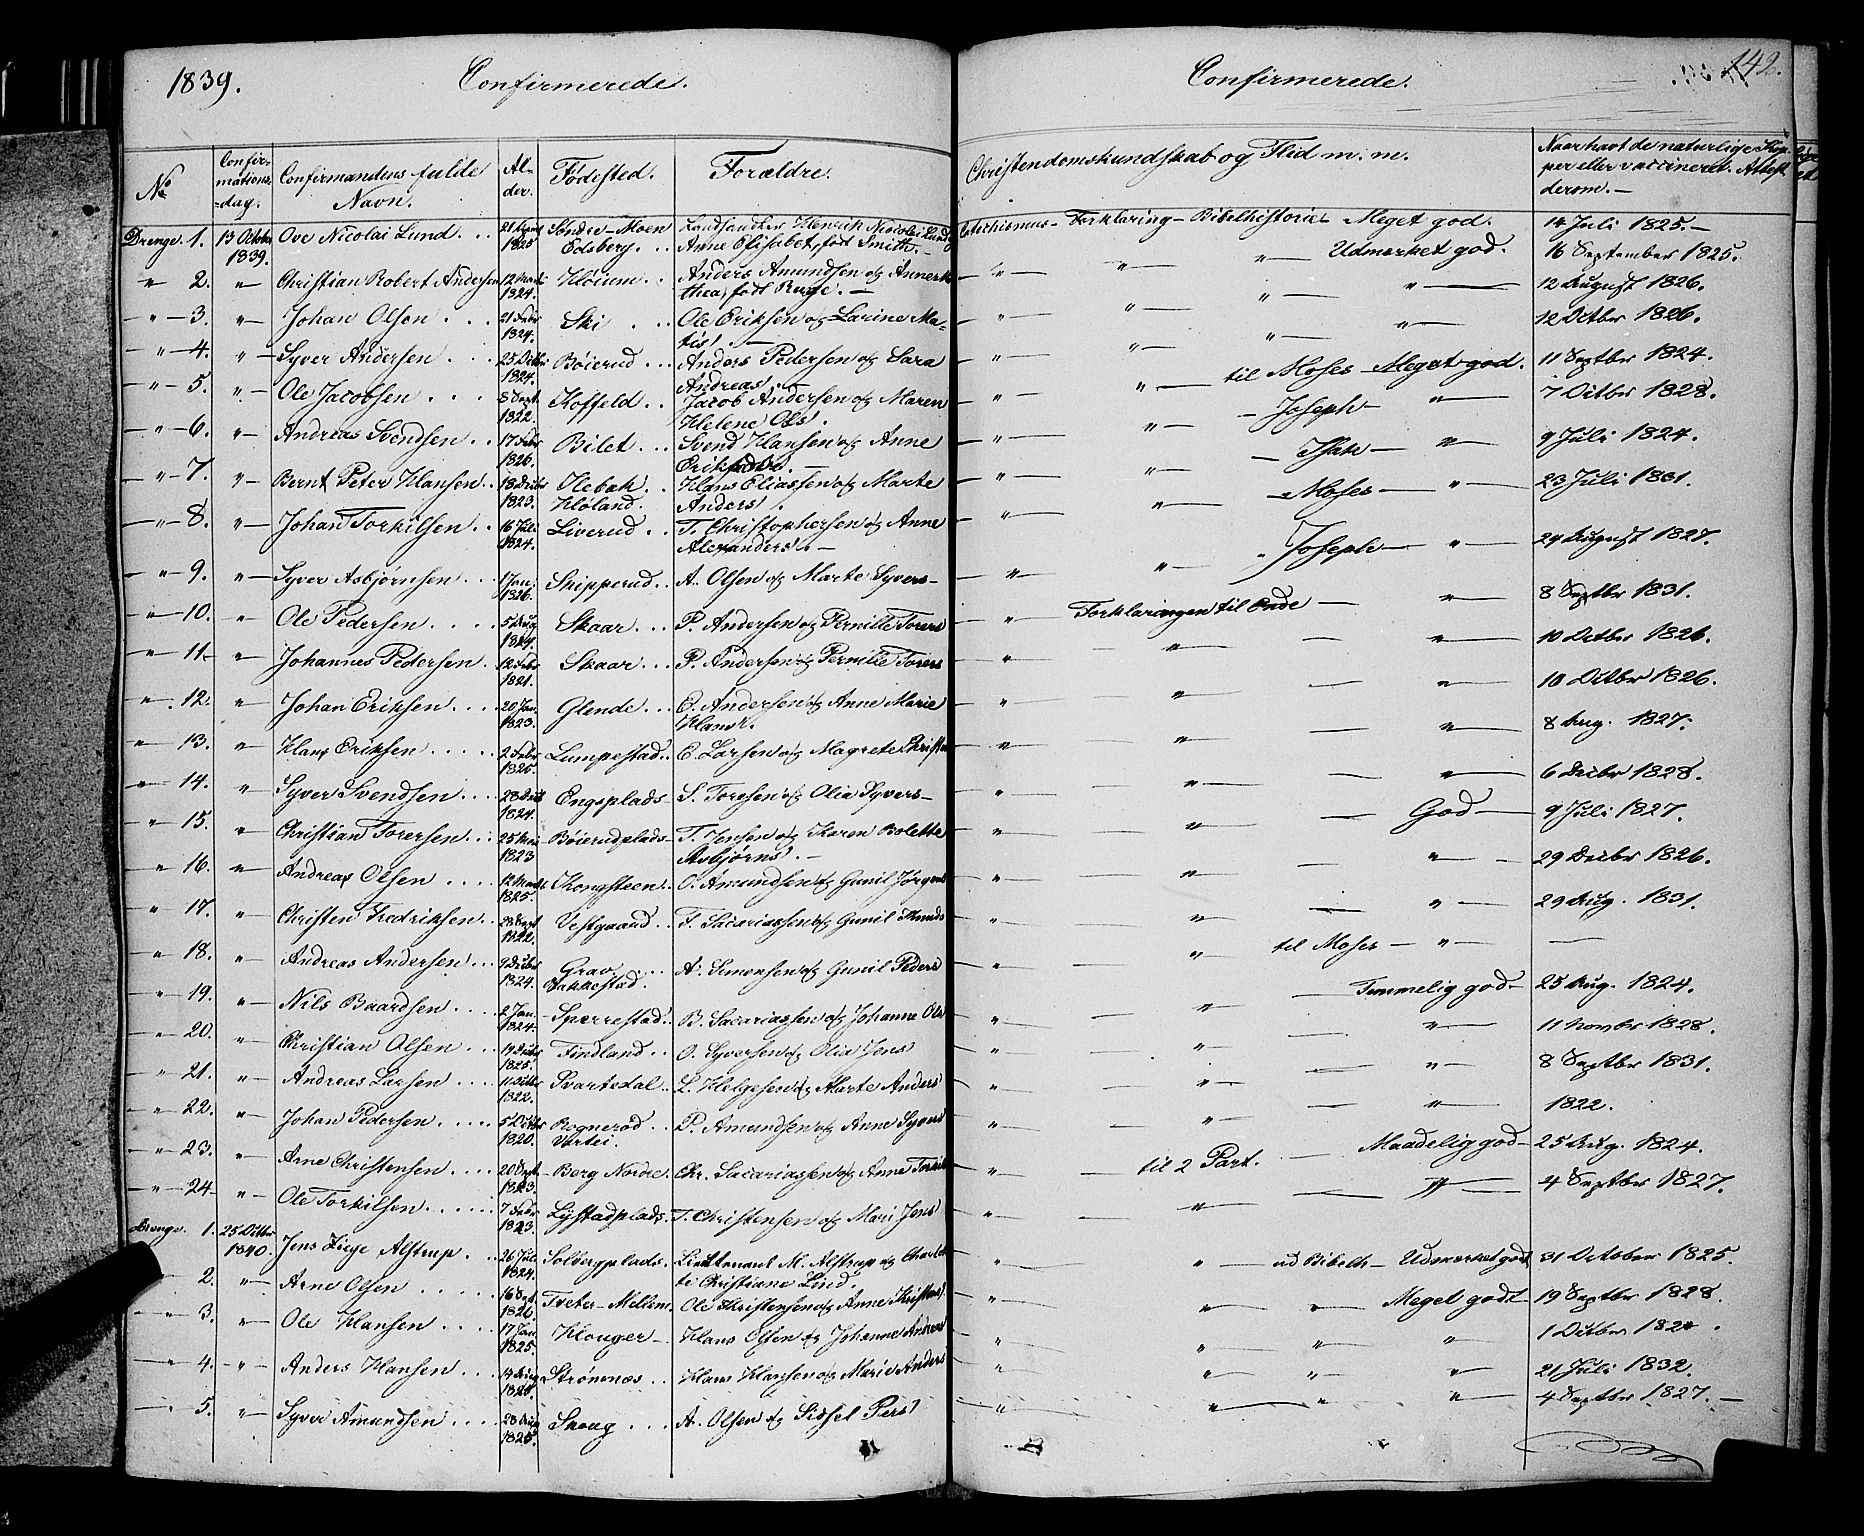 1839.
Confirmerede.
Confirmerede.
142.
No
Confirmationsdag.
Confirmandens fulde Navn.
Alder.
Fødested.
Forældre.
Christendomskundskab og Flid m. m.
Naar havt de naturlige Kopper eller vaccineret. Attest derom. —
Drenge. 1. 13 October 1839. Ove Nicolai Lund . . 1825 Søndre-Moen Edsberg. Landhandler Henrik Nicolai Lund Anne Elisabet, født Smith. — Catechismus — Forklaring — Bibelhistorie — Meget god. 14 Juli 1825. —
" 2. " Christian Robert Andersen 12 Marts 1824. Høium . . Anders Amundsen og født — " " " Udmærket god. 16 September 1825.
" — 3. " Johan Olsen . . . 21 Febr 1824. Ski . . . Ole Eriksen og Larine Matis! — " " " " 12 August 1826.
" — 4. " Syver Andersen . . . 25 Octbr 1824. Bøierud . . . Anders Pedersen og Sara Andreas! . " " " " 12 Octbr 1826.
" — 5. " Ole Jacobsen . . . 8 Sept. 1822. Koffeld . . Jacob Andersen og Maren Helene Ols! . " " " til Moses — Meget god. 11 Septbr 1824.
" — 6. " Andreas Svendsen . . 17 Febr 1826. Bilet . . . Svend Hansen og Anne — " " — Joseph — " 7 Octbr 1828.
" — 7. " Bernt Peter Hansen . . 18 Decbr 1823. Hebak . Høland. Hans Eliassen og Marte Anders! . " " — Isak — " 9 Juli 1824.
" — 8. " Johan Torkilsen . . 16 Juli 1824. Liverud . . T. Christophersen og Anne Alexanders! . — " " — Moses — " 23 Juli 1831.
" — 9. " Syver Asbjørnsen . . . 1 Jan. 1826. Skipperud . . A. Olsen og Marte Syvers — " " Joseph — " 24 August 1827.
" — 10. " Ole Pedersen . . . . 5 Aug 1824. Skaar . . . P. Andersen og Pernille Torers " Forklaringen til Ende — " 8 Septbr 1831.
" — 11. " Johannes Pedersen . 12 Febr 1821. Skaar . . . P. Andersen og Pernille Torers " " — " 10 Octbr 1826.
" — 12. " Johan Eriksen . . . . 20 Jan. 1823. Glende . . . E. Andersen og Anne Marie Hans! . " " — " 10 Octbr 1826.
" — 13. " Hans Eriksen . . . . . 2 Febr 1825. Lumpestad . . E. Larsen og Magrete " " — " 8 Aug. 1827.
" — 14. " Syver Svendsen . . . . 28 1824. Engsplads — S. Toresen og Olia Syvers — " " — " 6 Decbr 1828.
" — 15. " Christian Torersen . . . 25 1823 Bøierudplads — T. Jensen og Karen Bolette Asbjørns! . — " " — God — 9 Juli 1827.
" 16. " Andreas Olsen . . . . 12 Marts 1825. Kongsteen . . O. Amundsen og Gunil Jørgens " " — " — 29 Decbr 1826.
" 17. " Christen Fredriksen . . 23 Sept 1822. Vestgaard . . F. Sacariassen og Gunil Amunds " " — " — 29 Aug. 1831.
" 18. " Andreas Andersen . . . 9 Decbr 1824. Grav . . . Vakkestad. A. Simonsen og Gunil Peders " " til Moses — " — —
" — 19. " Nils Baardsen . . . . 2 Jan. 1824. Sperrestad . . B. Sacariassen og Johanne Ols " " — Temmelig god — 25 Aug. 1824.
" 20. " Christian Olsen . . . . 19 1825. Findland . . O. Syversen og Olia Jens " " — " 11 Novbr 1828.
" — 21. " Andreas Larsen . . . . 11 1822. Svartedal . . L. Helgesen og Marte Anders " " — " 8 Septbr 1831.
" — 22. " Johan Pedersen . . . . 5 1820. Rognerød . . P. Amundsen og Anne Syvers " " — " 1822.
" — 23. " Arne Christensen . . . . 20 Sept 1823. Berg Nordre. Chr. Sacariassen og Anne " — til 2 Part. — Maadelig god — 25 Aug. 1824.
" — 24 " Ole Torkilsen . . . . . . 7 Febr 1823. Lystadplads. T. Christensen og Mari Jens " — " — " 4 Septbr 1827.
Drenge. 1. 25 Octbr 1840. Jens Ziege Alstrup . . . 26 Juli 1824. Solbergplads. Lieutenant M. Alstrup og Christiane Lind. " " ud Bibelh — Udmærket godt 31 October 1825.
2. " Arne Olsen . . . . . 16 Sept. 1826. Tveter-Mellem. Ole Christensen og Anne " " " Meget godt 19 Septbr 1828.
" 3. " Ole Hansen . . . . 17 Jan. 1825. Klouger — Hans Olsen og Johanne Anders " " " " 1 Octbr
" 4. " Anders Hansen . . . . 14 Strønnæs . . Hans Hansen og Marie Anders " " " " 21 Juli 1832.
" 5. " Syver Amundsen . . . . 28 1825. Skoug . . . A. Olsen og Sidsel Pers! " " " " 4 Septbr 1827. —